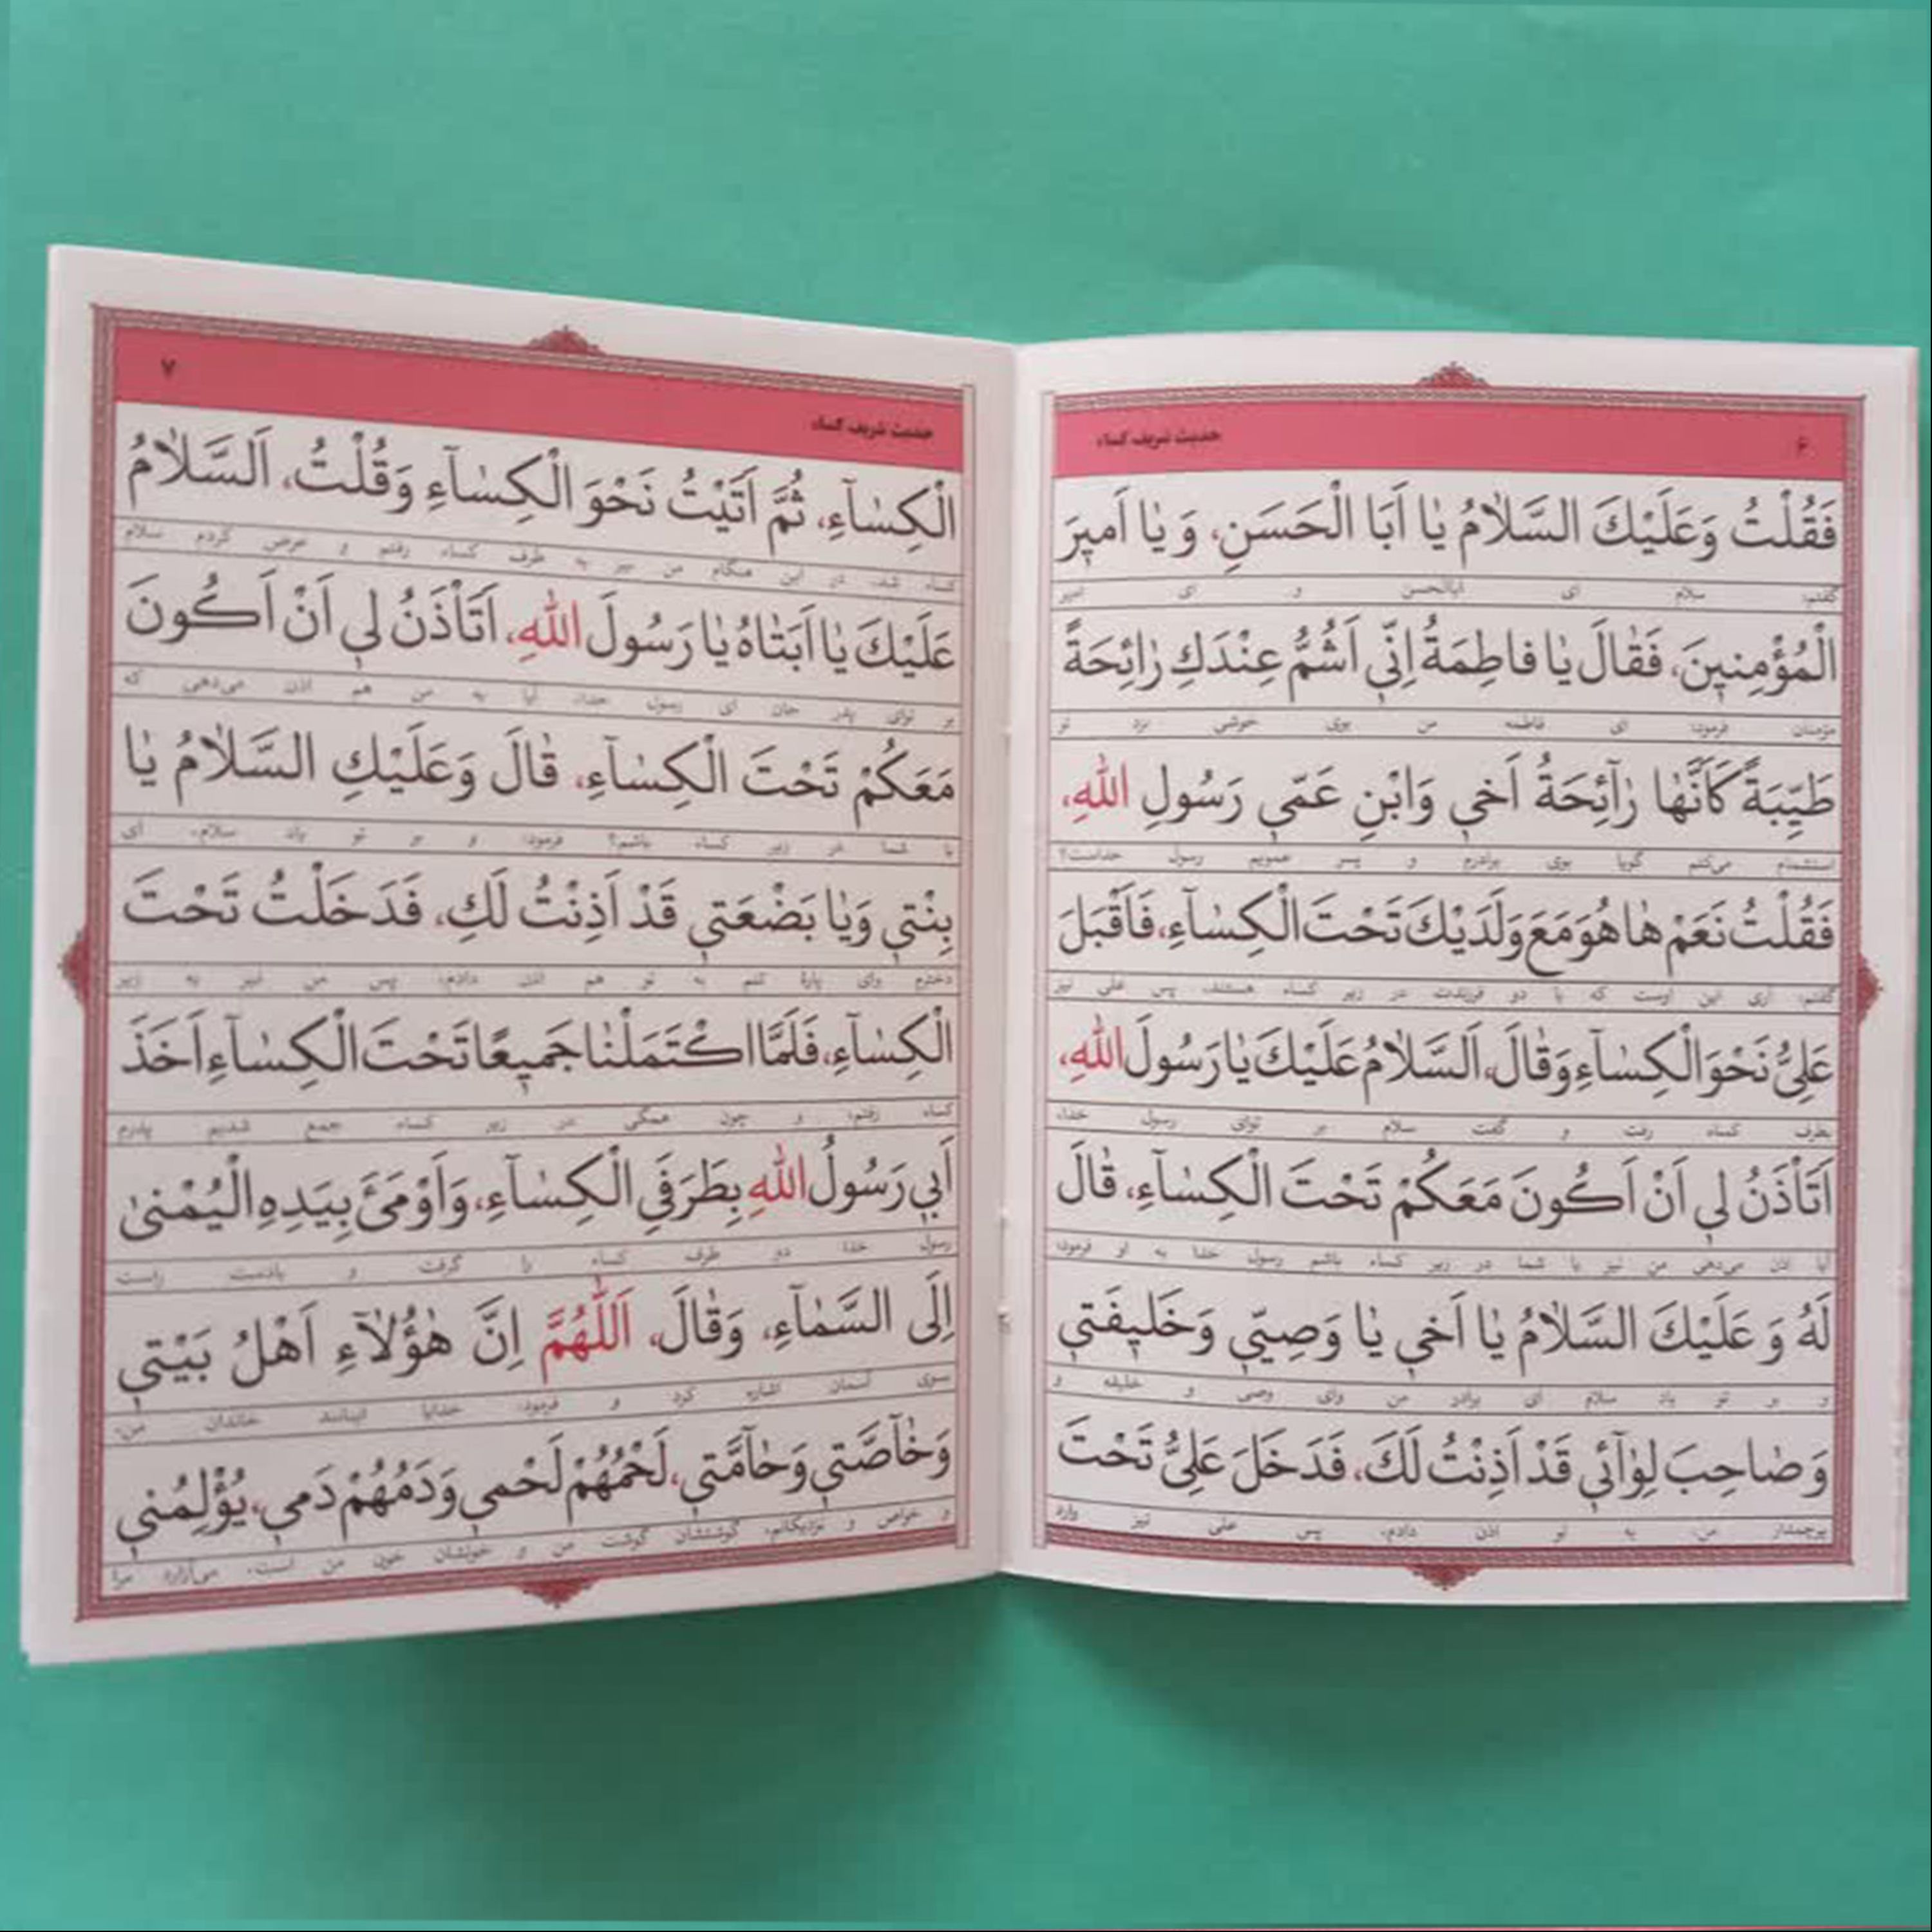 ۶
حدیث شریف کساء
فَقُلْتُ وَعَلَيْكَ السَّلاٰمُ يٰا اَبَا الْحَسَنِ، وَ يٰا اَميٖرَ
گفتم: سلام ای اباالحسن و ای امیر
الْمُؤْمِنيٖنَ، فَقٰالَ يٰا فاطِمَةُ اِنّيٖ اَشُمُّ عِنْدَكِ رٰائِحَةً
مؤمنان فرمود: ای فاطمه من بوی خوشی نزد تو
طَيِّبَةً كَاَنَّهٰا رٰآئِحَةُ اَخيٖ وَابْنِ عَمّيٖ رَسُولِ اللّٰهِ،
استشمام می‌کنم گویا بوی برادرم و پسر عمویم رسول خداست؟
فَقُلْتُ نَعَمْ هٰا هُوَ مَعَ وَلَدَيْكَ تَحْتَ الْكِسٰآءِ، فَاَقْبَلَ
گفتم: آری این اوست که با دو فرزندت در زیر کساء هستند، پس علی نیز
عَلِيٌّ نَحْوَ الْكِسٰآءِ وَقٰالَ، اَلسَّلاٰمُ عَلَيْكَ يٰا رَسُولَ اللّٰهِ،
بطرف کساء رفت و گفت سلام بر توای رسول خدا،
اَتَاْذَنُ ليٖ اَنْ اَكُونَ مَعَكُمْ تَحْتَ الْكِسٰآءِ، قٰالَ
آیا اذن می‌دهی من نیز با شما در زیر کساء باشم رسول خدا به او فرمود:
لَهُ وَ عَلَيْكَ السَّلاٰمُ يٰا اَخيٖ يٰا وَصِيّيٖ وَخَليٖفَتيٖ
و بر تو باد سلام ای برادر من وای وصی و خلیفه و
وَ صٰاحِبَ لِوٰآئيٖ قَدْ اَذِنْتُ لَكَ، فَدَخَلَ عَلِيٌّ تَحْتَ
پرچمدار من به تو اذن دادم، پس علی نیز وارد
۷
حدیث شریف کساء
الْكِسٰآءِ، ثُمَّ اَتَيْتُ نَحْوَ الْكِسٰآءِ وَقُلْتُ، اَلسَّلاٰمُ
کساء شد، در این هنگام من نیز به طرف کساء رفتم و عرض کردم سلام
عَلَيْكَ يٰا اَبَتٰاهُ يٰا رَسُولَ اللّٰهِ، اَتَاْذَنُ ليٖ اَنْ اَكُونَ
بر توای پدر جان ای رسول خدا، آیا به من هم اذن می‌دهی که
مَعَكُمْ تَحْتَ الْكِسٰآءِ، قٰالَ وَعَلَيْكِ السَّلاٰمُ يٰا
با شما در زیر کساء باشم؟ فرمود: و بر تو باد سلام، ای
بِنْتيٖ وَيٰا بَضْعَتيٖ قَدْ اَذِنْتُ لَكِ، فَدَخَلْتُ تَحْتَ
دخترم وای پاره تنم به تو هم اذن دادم، پس من نیز به زیر
الْكِسٰآءِ، فَلَمَّا اكْتَمَلْنٰا جَميٖعًا تَحْتَ الْكِسٰآءِ اَخَذَ
کساء رفتم، و چون همگی در زیر کساء جمع شدیم پدرم
اَبيٖ رَسُولُ اللّٰهِ بِطَرَفَيِ الْكِسٰآءِ، وَاَوْمَئَ بِيَدِهِ الْيُمْنىٰ
رسول خدا دو طرف کساء را گرفت و بادست راست
اِلَى السَّمٰآءِ، وَقٰالَ، اَللّٰهُمَّ اِنَّ هٰؤُلآٰءِ اَهْلُ بَيْتيٖ
بسوی آسمان اشاره کرد و فرمود: خدایا اینانند خاندان من،
وَخٰآصَّتيٖ وَحٰآمَّتيٖ، لَحْمُهُمْ لَحْميٖ وَدَمُهُمْ دَميٖ، يُؤْلِمُنيٖ
و خواص و نزدیکانم، گوشتشان گوشت من و خونشان خون من است، می‌آزارد مرا